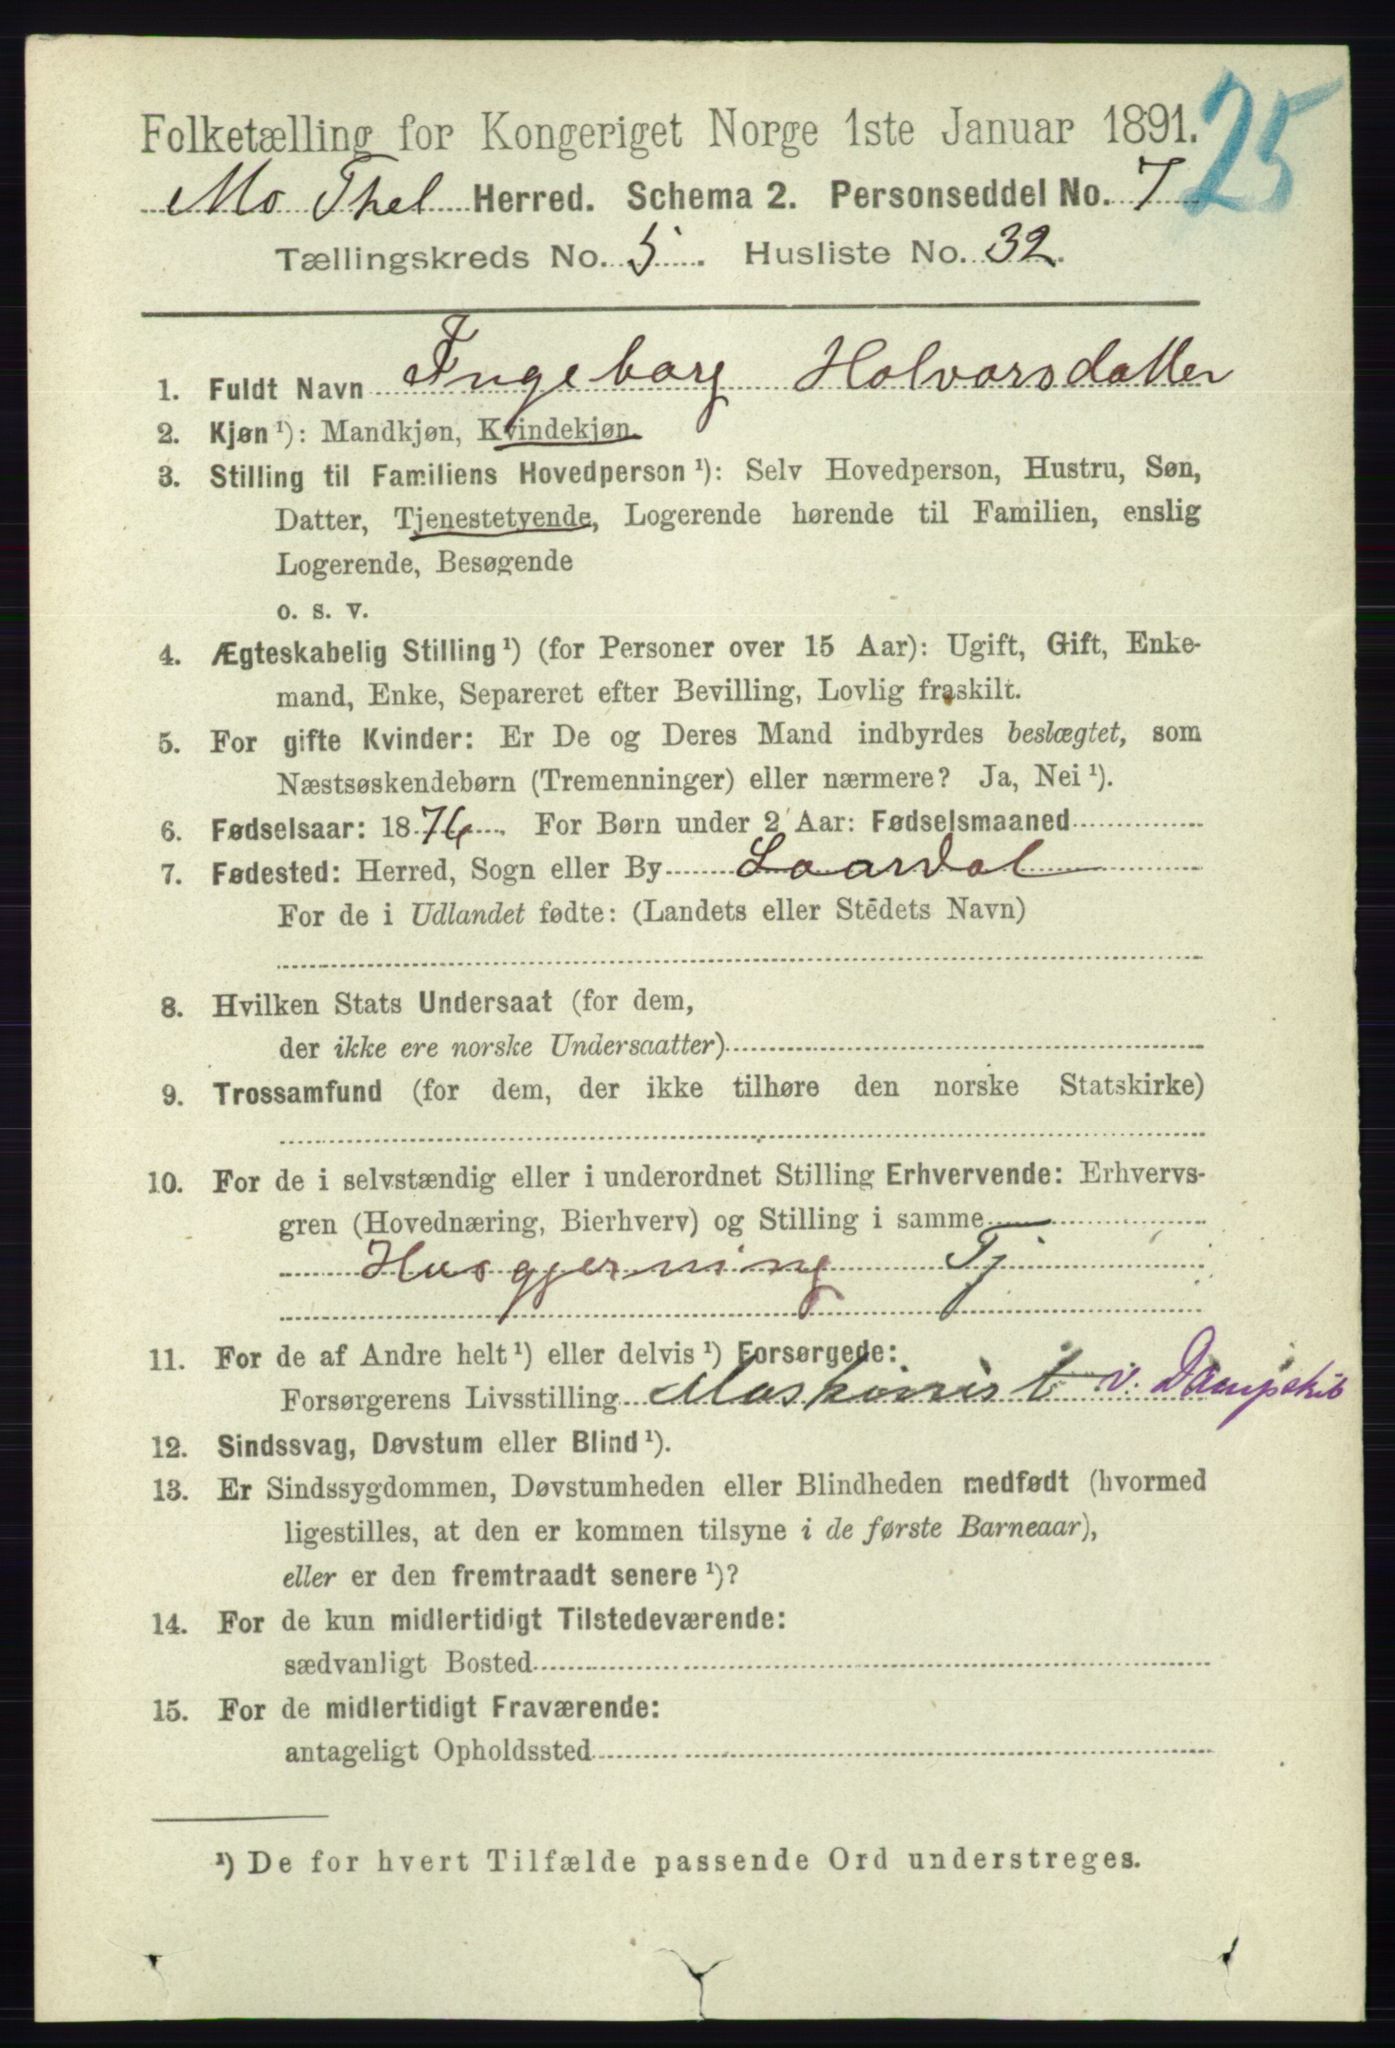 Folketælling for Kongeriget Norge 1ste Januar 1891. 25
Mo Thel Herred. Schema 2. Personseddel No. 7
Tællingskreds No. 5. Husliste No. 32.
1. Fuldt Navn Ingeborg Halvorsdatter
2. Kjøn ¹): Mandkjøn, Kvindekjøn.
3. Stilling til Familiens Hovedperson ¹): Selv Hovedperson, Hustru, Søn,
Datter, Tjenestetyende, Logerende hørende til Familien, enslig
Logerende, Besøgende
o. s. v.
4. Ægteskabelig Stilling ¹) (for Personer over 15 Aar): Ugift, Gift, Enke-
mand, Enke, Separeret efter Bevilling, Lovlig fraskilt.
5. For gifte Kvinder: Er De og Deres Mand indbyrdes beslægtet, som
Næstsøskendebørn (Tremenninger) eller nærmere? Ja, Nei ¹).
6. Fødselsaar: 1876. For Børn under 2 Aar: Fødselsmaaned
7. Fødested: Herred, Sogn eller By Laardal
For de i Udlandet fødte: (Landets eller Stedets Navn)
8. Hvilken Stats Undersaat (for dem,
der ikke ere norske Undersaatter)
9. Trossamfund (for dem, der ikke tilhøre den norske Statskirke)
10. For de i selvstændig eller i underordnet Stilling Erhvervende: Erhvervs-
gren (Hovednæring, Bierhverv) og Stilling i samme
Husgjerning Tj
11. For de af Andre helt ¹) eller delvis ¹) Forsørgede:
Forsørgerens Livsstilling Maskinist v. Dampskib
12. Sindssvag, Døvstum eller Blind ¹).
13. Er Sindssygdommen, Døvstumheden eller Blindheden medfødt (hvormed
ligestilles, at den er kommen tilsyne i de første Barneaar),
eller er den fremtraadt senere ¹)?
14. For de kun midlertidigt Tilstedeværende:
sædvanligt Bosted
15. For de midlertidigt Fraværende:
antageligt Opholdssted
¹) De for hvert Tilfælde passende Ord understreges.